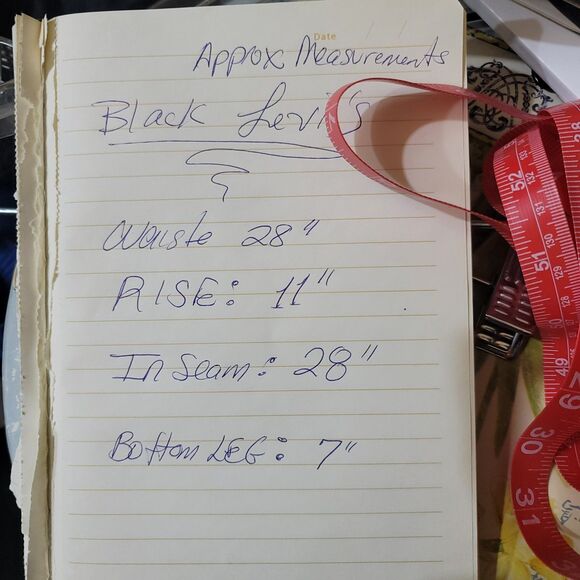 Date
Approx Measurements
Black Levi's
Waiste 28"
RISE: 11"
In Seam: 28"
Bottom LEG: 7"
52
131
132
51
130
129
49
30
31